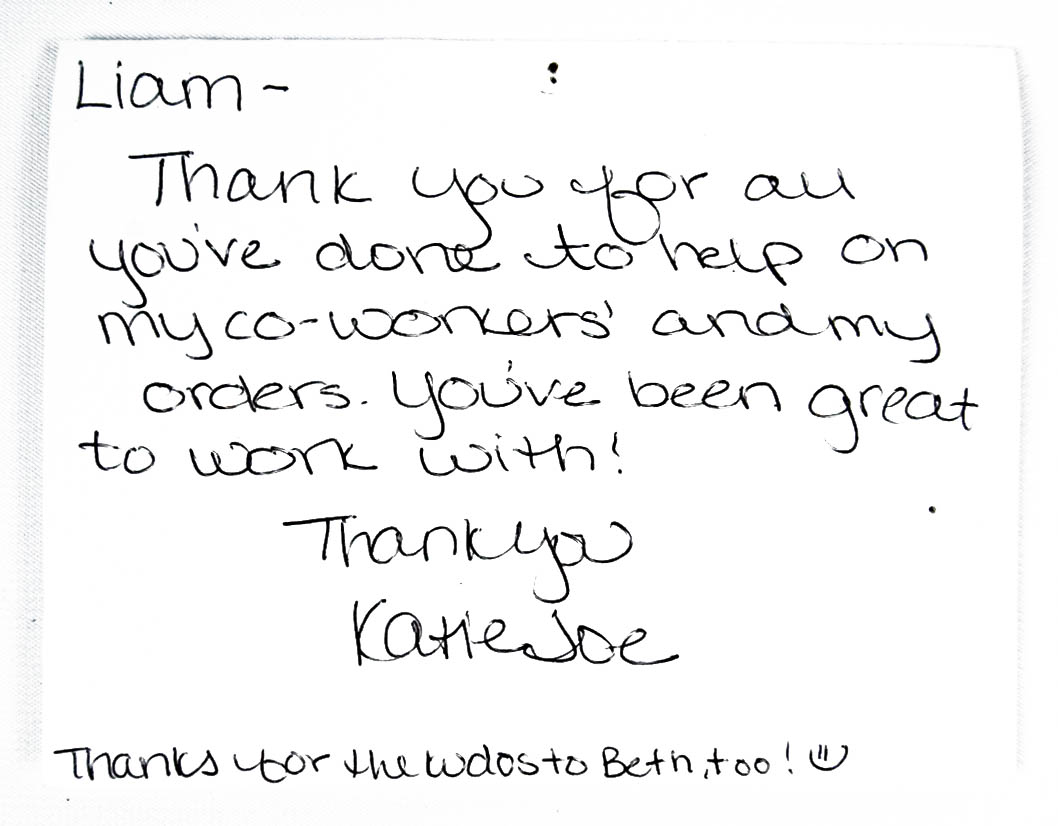 Liam -
Thank you for all
you've done to help on
my co-workers' and my
orders. You've been great
to work with!
Thank you
Katie Joe
Thanks for the kudos to Beth, too!